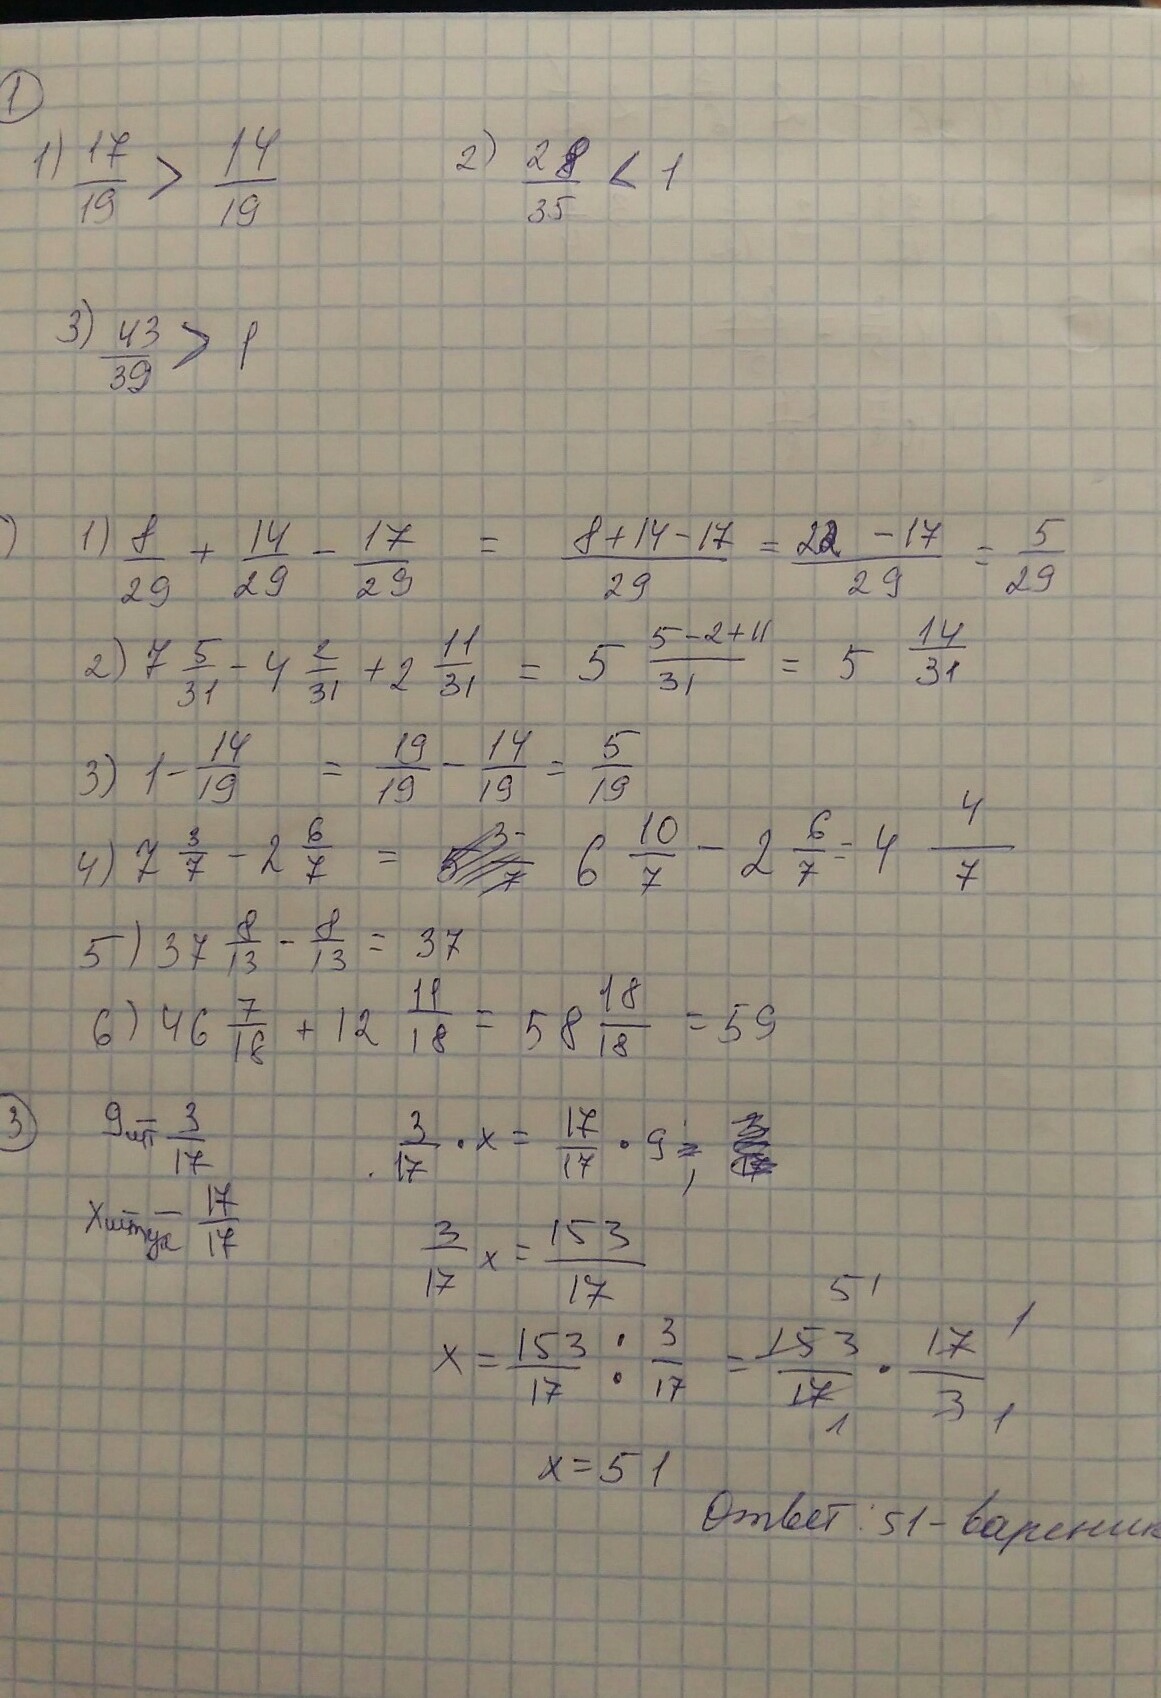 1
1) 17/19 > 14/19 2) 28/35 < 1
3) 43/39 > 1
) 1) 8/29 + 14/29 - 17/29 = 8+14-17/29 = 22-17/29 = 5/29
2) 7 5/31 - 4 2/31 + 2 11/31 = 5 5-2+11/31 = 5 14/31
3) 1 - 14/19 = 19/19 - 14/19 = 5/19
4) 7 3/7 - 2 6/7 = 6 10/7 - 2 6/7 = 4 4/7
5) 37 8/13 - 8/13 = 37
6) 46 7/18 + 12 11/18 = 58 18/18 = 59
3 9шт - 3/17 3/17 · x = 17/17 · 9;
X штук - 17/17 3/17 x = 153/17
x = 153/17 : 3/17 = 153/17 · 17/3 51 1 1 1
x = 51
Ответ: 51 - вареник